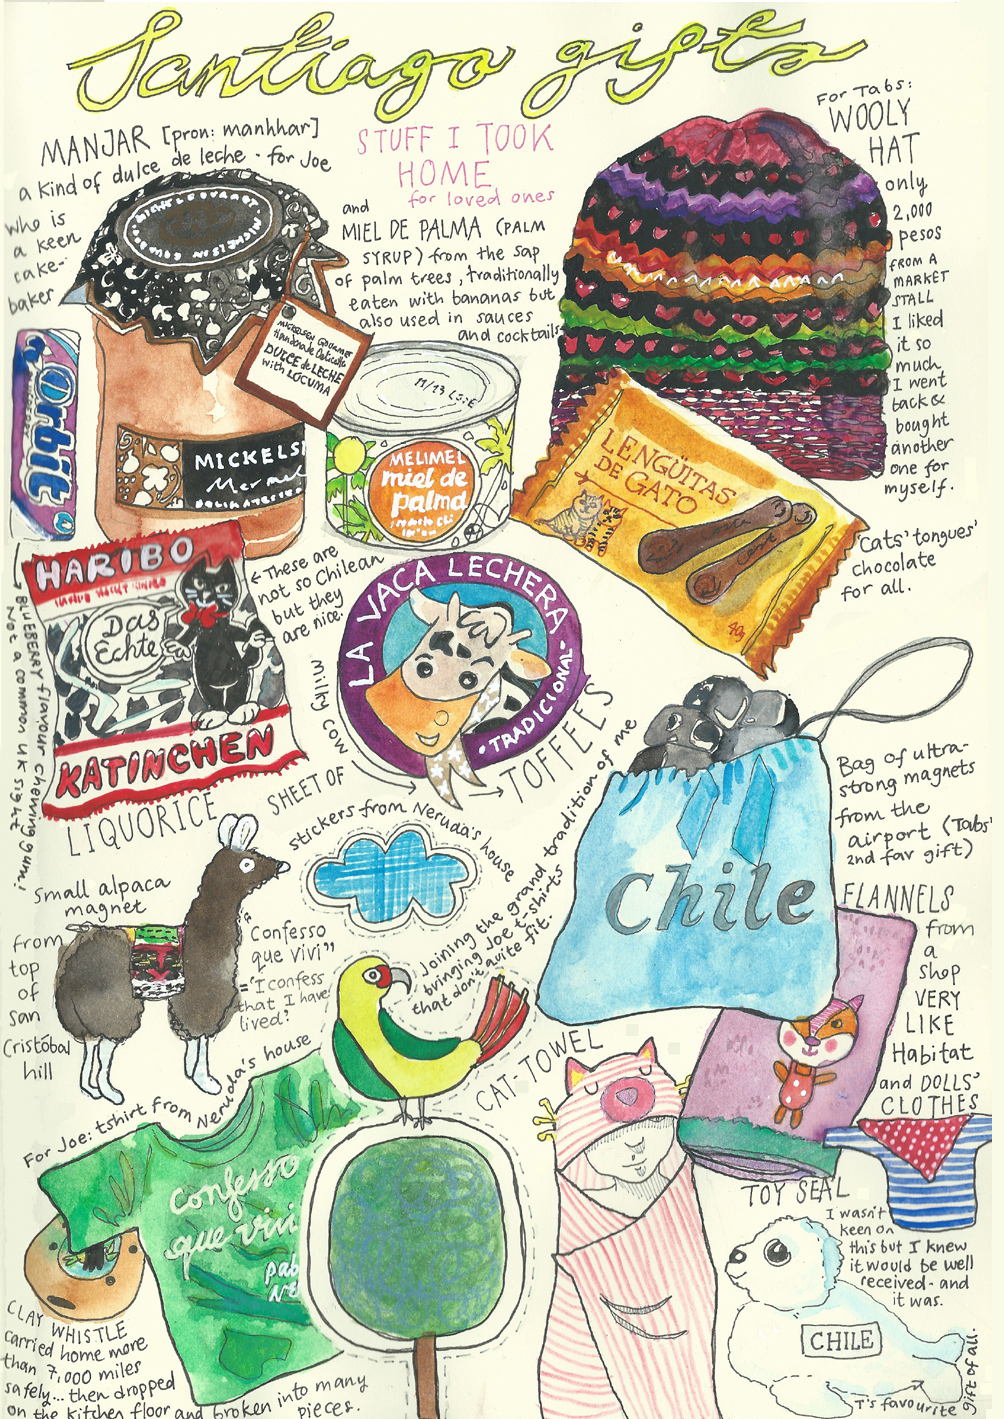 Santiago gifts
MANJAR [pron: manhhar]
a kind of dulce de leche - for Joe
who is
a keen
cake-
baker
STUFF I TOOK
HOME
for loved ones
and
MIEL DE PALMA (PALM
SYRUP) from the sap
of palm trees, traditionally
eaten with bananas but
also used in sauces
and cocktails
For Tabs:
WOOLY
HAT
only
2,000
pesos
FROM A
MARKET
STALL
I liked
it so
much
I went
back &
bought
another
one for
myself.
MICKELSEN GOURMET
DULCE de LECHE
with LUCUMA
Orbit
MICKELS
Mermel
DELIKATESSEN
M/13 L:S:E
MELIMEL
miel de
palma
LENGÜITAS
DE GATO
40g
'Cats' tongues'
chocolate
for all.
HARIBO
Das
Echte
KATINCHEN
LIQUORICE
← These are
not so Chilean
but they
are nice.
BLUEBERRY flavour chewing gum!
Not a common UK sight
LA VACA LECHERA
• TRADICIONAL •
milky cow
SHEET OF
→ TOFFEES
stickers from Neruda's house
Joining the grand tradition of me
bringing Joe t-shirts
that don't quite fit.
Chile
Bag of ultra-
strong magnets
from the
airport (Tabs'
2nd fav gift)
Small alpaca
magnet
from
top
of
san
Cristóbal
hill
Confesso
que vivi"
= 'I confess
that I have
lived.'
For Joe: tshirt from Neruda's house
Confesso
que vivi
pab
ne
CLAY WHISTLE
carried home more
than 7,000 miles
safely... then dropped
on the kitchen floor and broken into many
pieces.
CAT-TOWEL
FLANNELS
from
a
shop
VERY
LIKE
Habitat
and DOLLS'
CLOTHES
TOY SEAL
I wasn't
keen on
this but I knew
it would be well
received - and
it was.
CHILE
T's favourite gift of all.